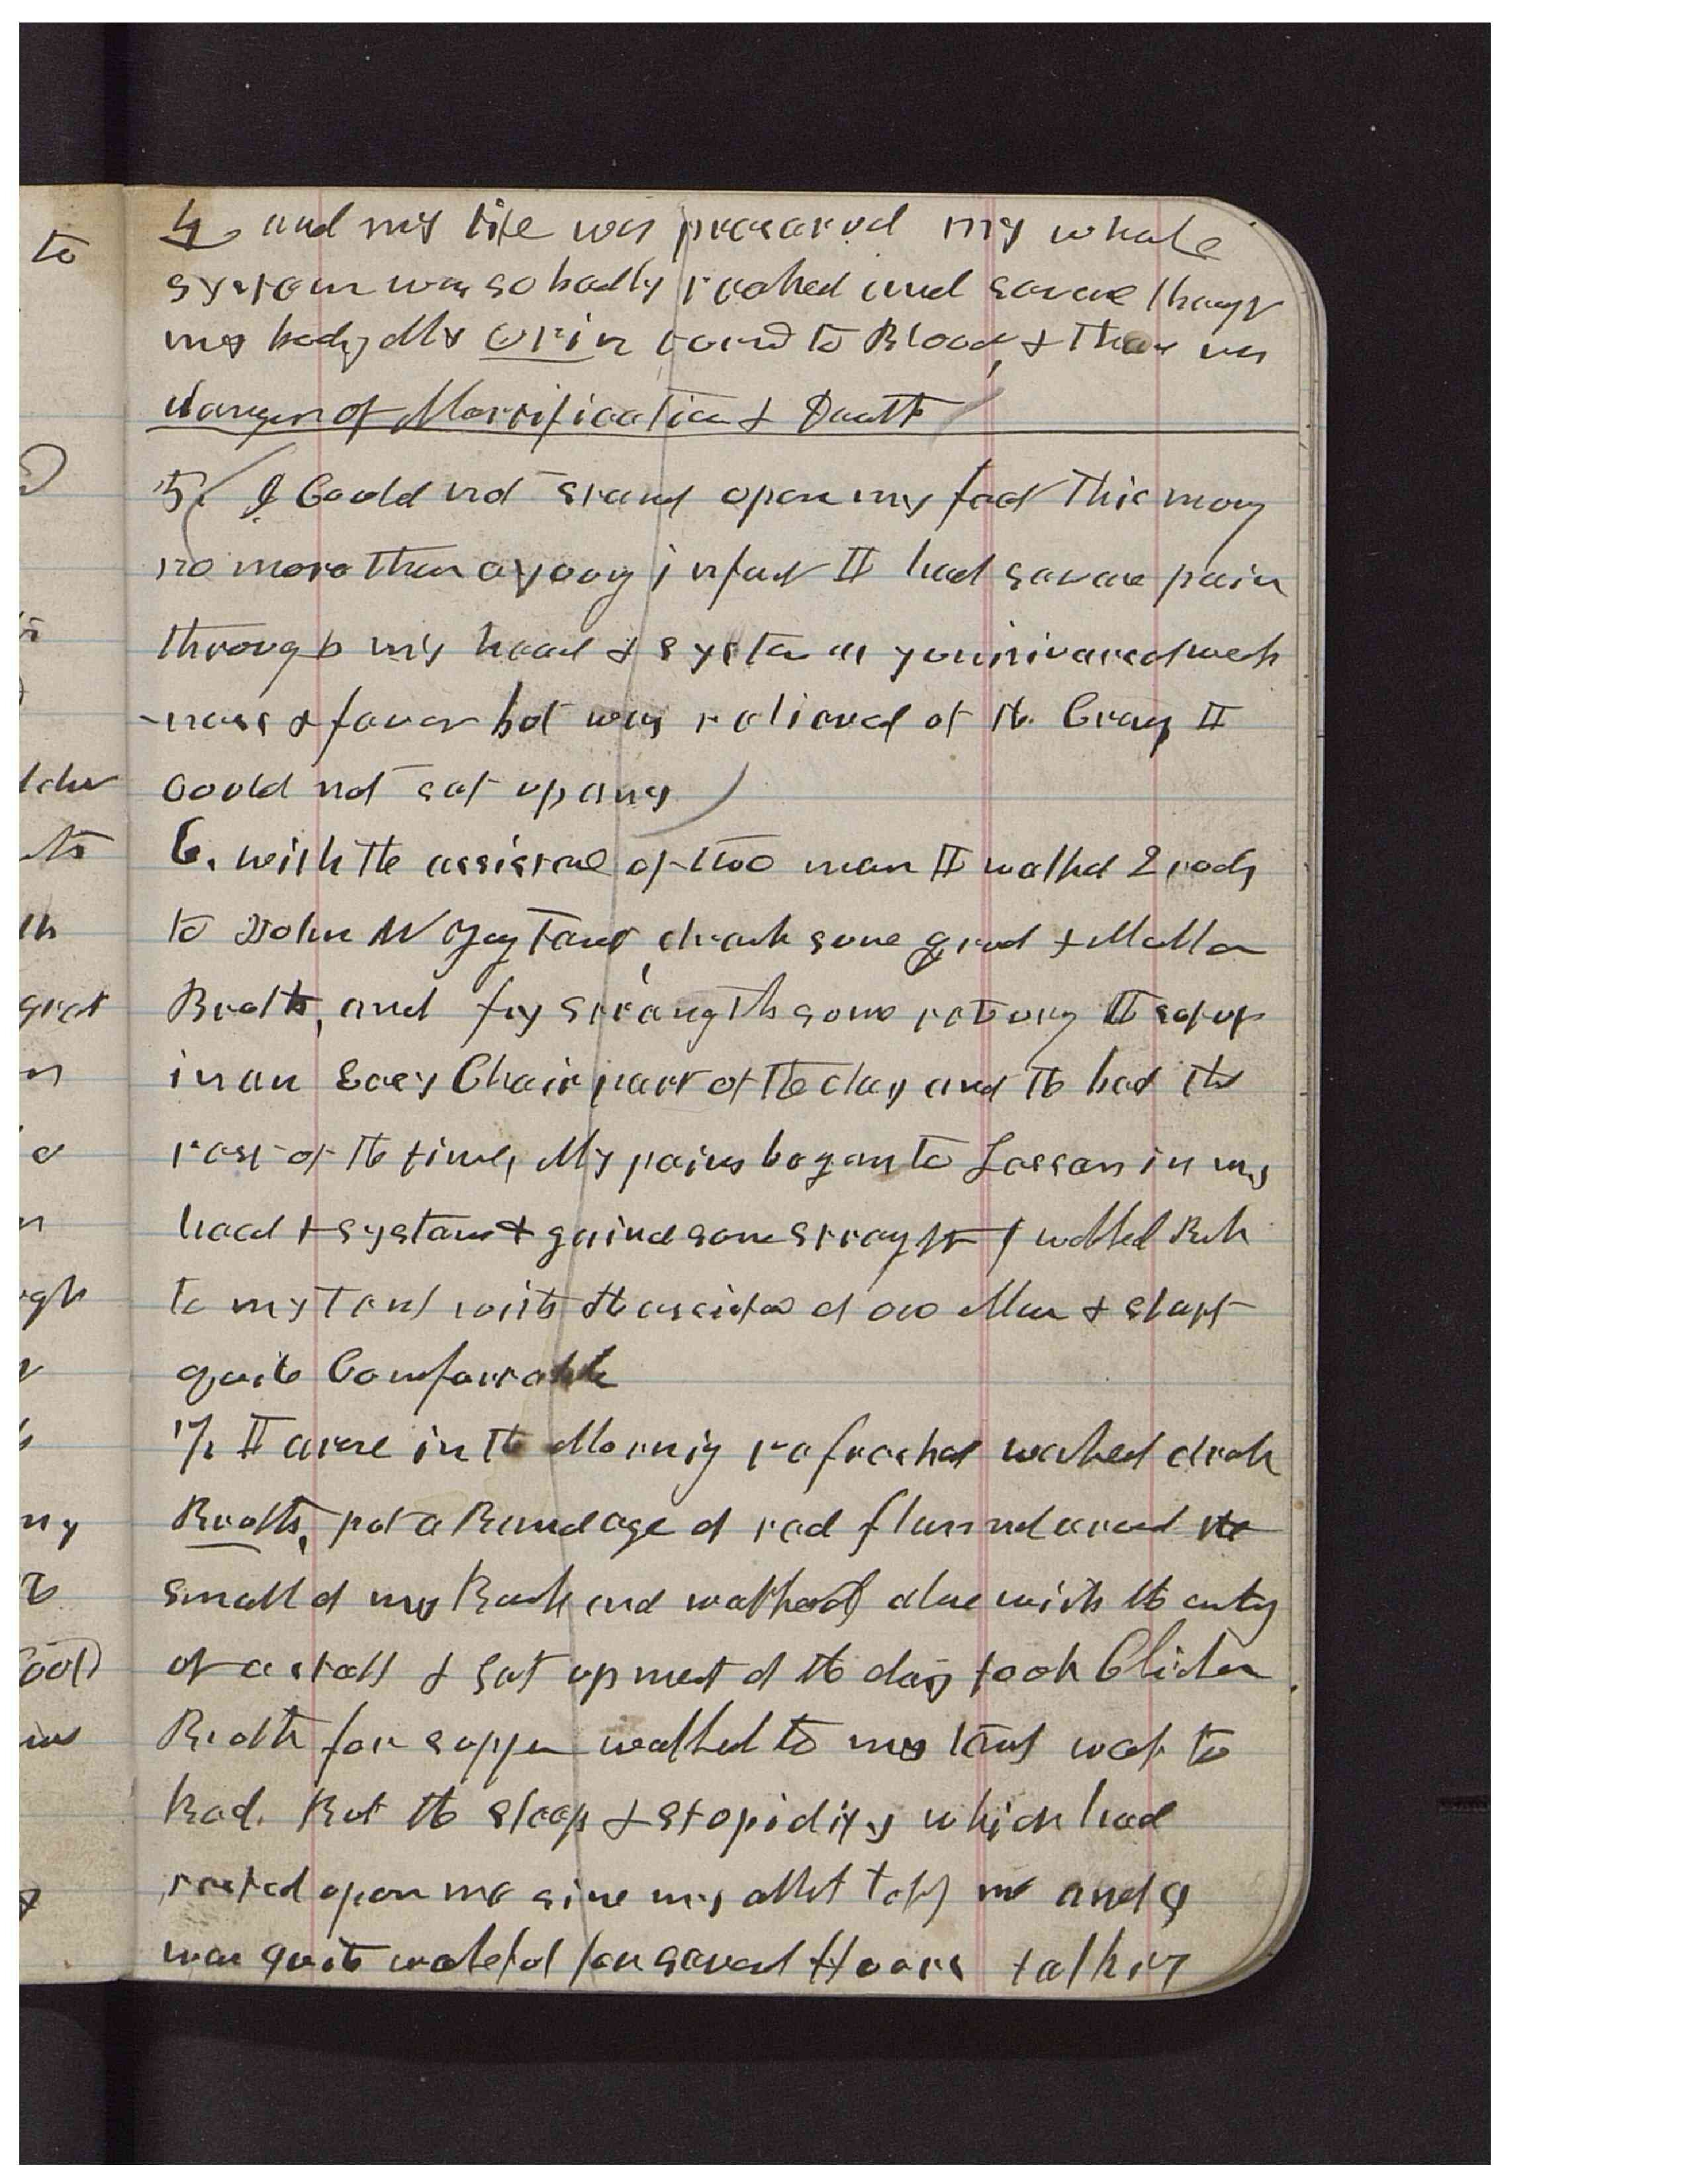 4 and my life was preserved my whole
system was so badly racked and severe through
my body My Urin turnd to Blood, & There was
danger of Mortification & Death
5. I Could not stand upon my feet This mong
no more than a young infant I had severe pain
through my head & system universal weak
-ness & fever but was relieved at the I
Could not set up any
6. with the assistance of two men I walked 2 rods
to John W Young Tent, drank some gruel & Mutton
Broth, and my strength some returng I set up
in an Easy Chair part of the day and the bed the
rest of the time, My pains began to Lessen in my
head & system & gained some strength I walked Back
to my Tent with the assistance of one Man & slept
quite Comfortable
7. I arose in the Morning refreshed washed drank
Broth, put a Bandage of red flannel around the
small of my Back and walked alone with the
of a staff & sat up most of the day took Chicken
Broth for supper walked to my tent went to
Bed. But the sleep & stupidity which had
rested upon me since my left me and I
was quite wakeful for several Hours talking